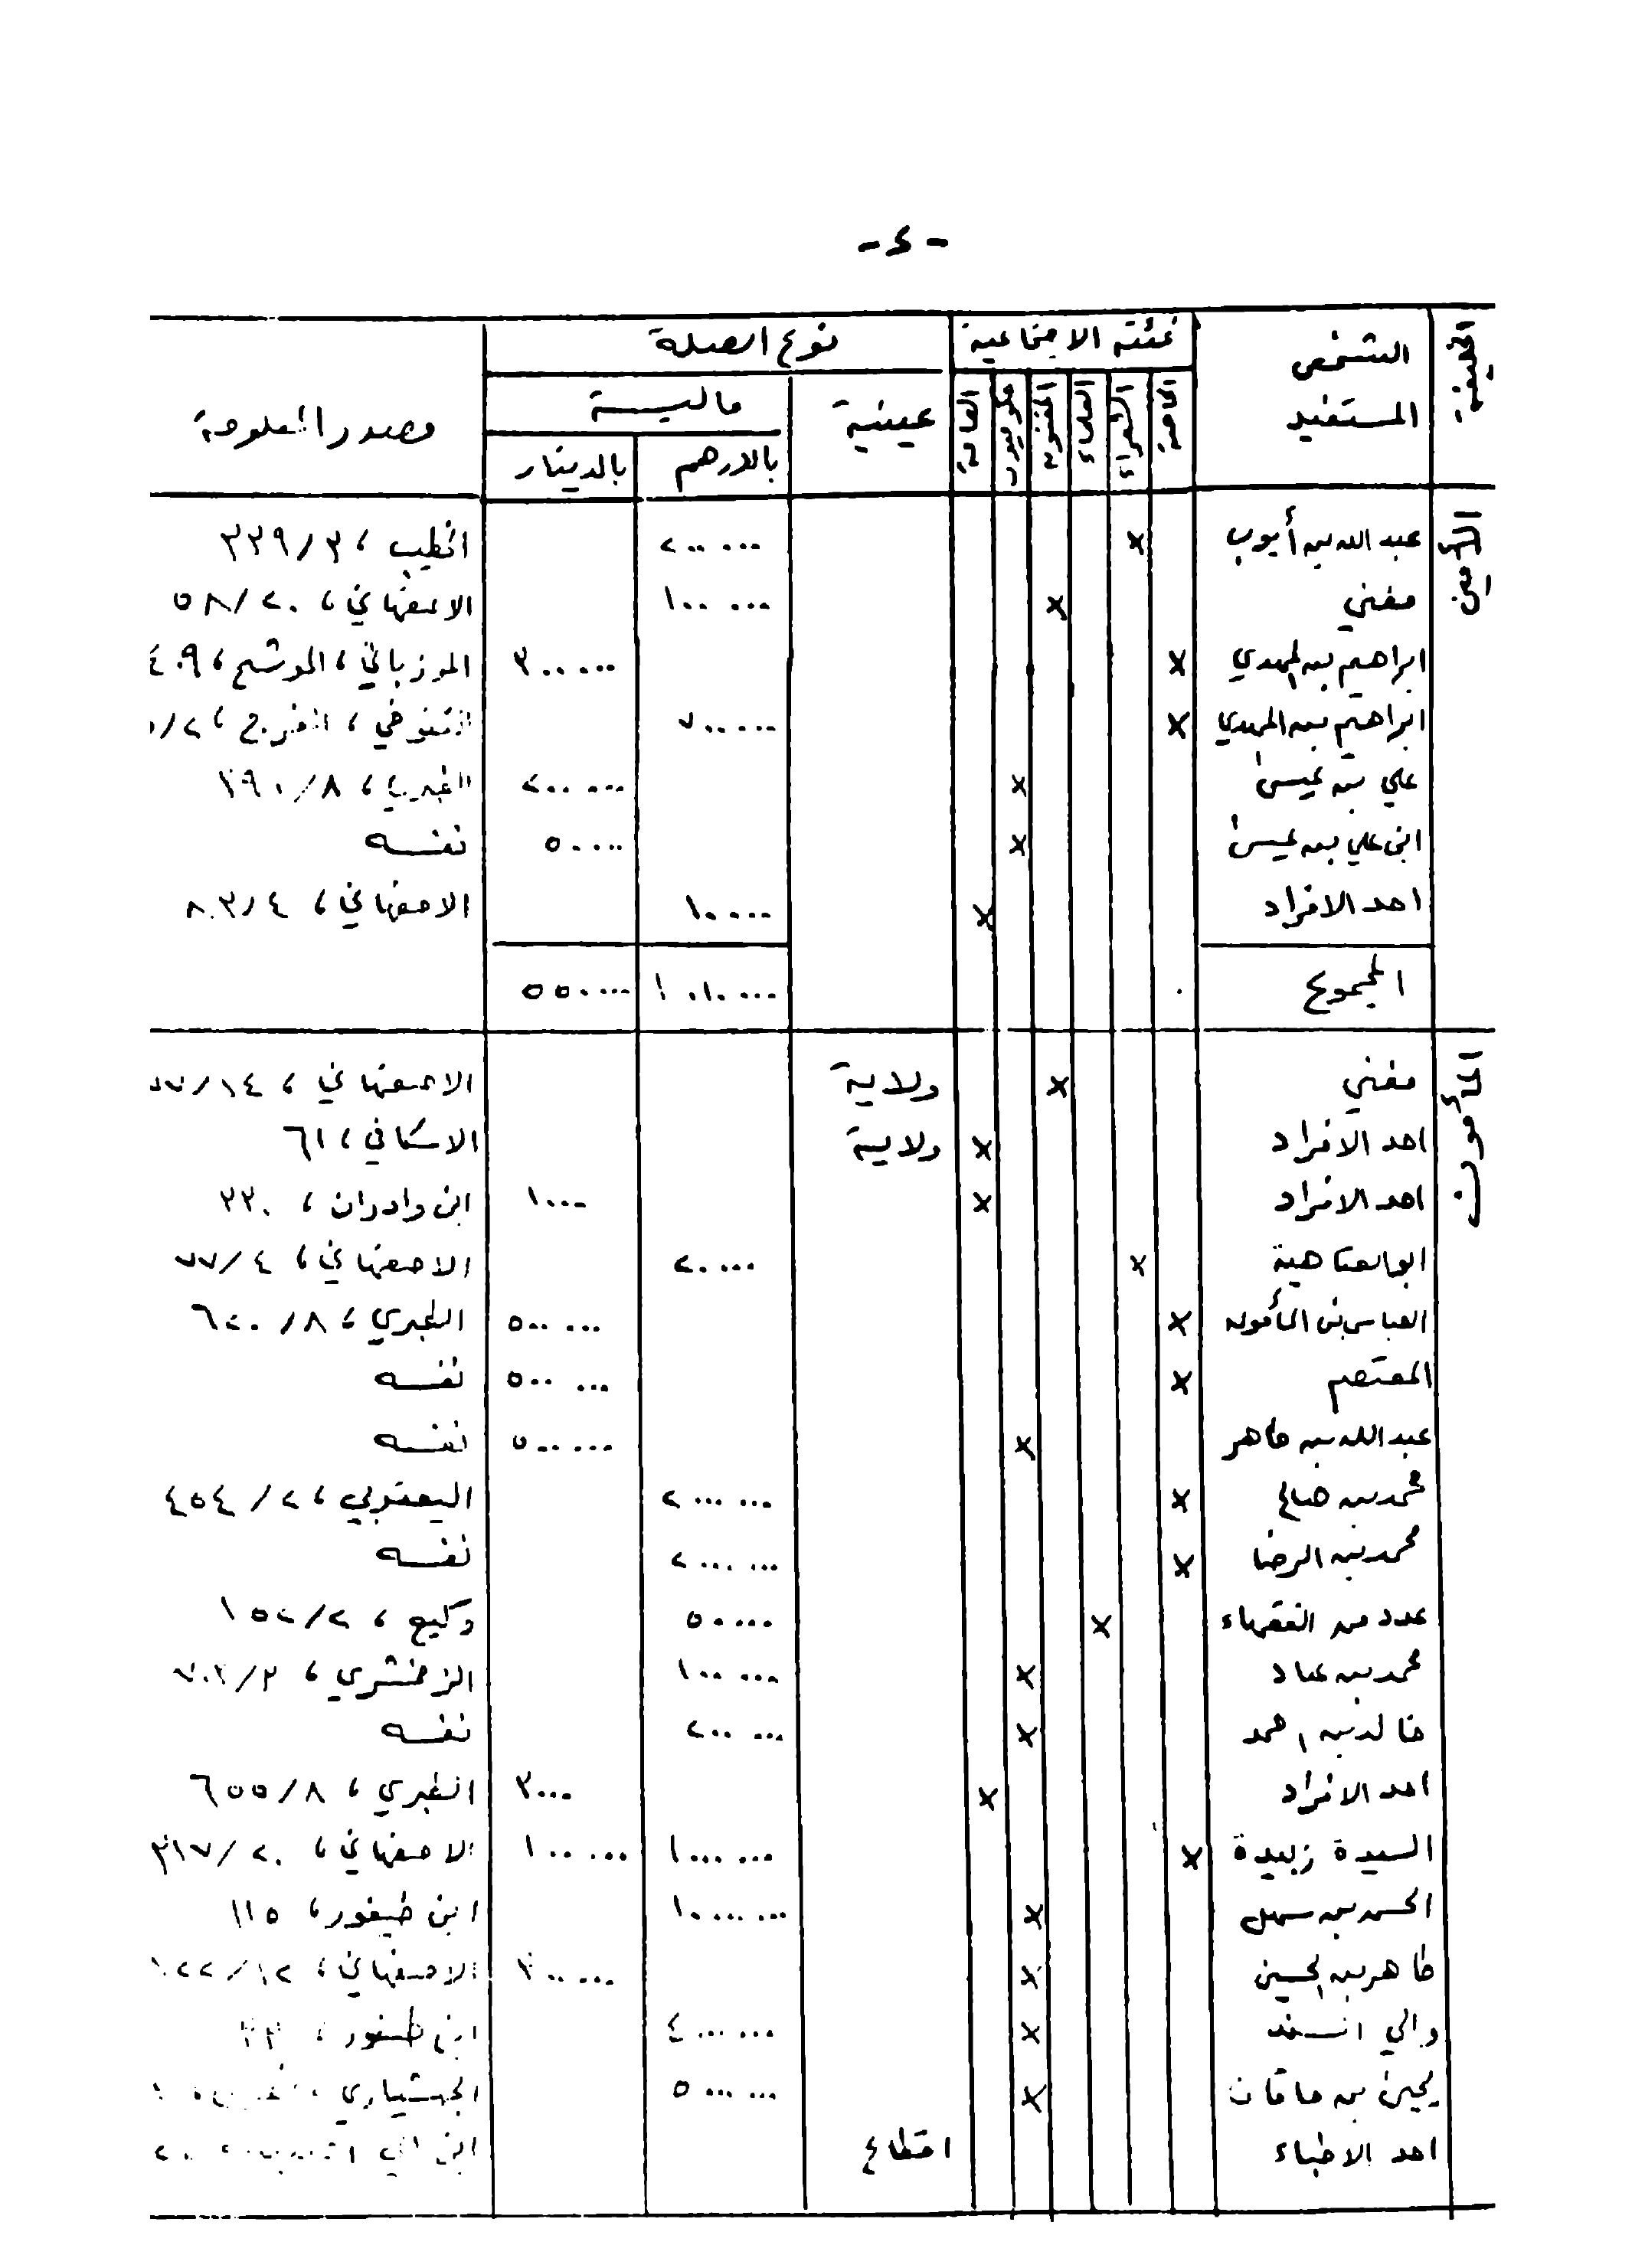 - ٤ -
الخليفة الشخص المستفيد فئته الاجتماعية نوع الصلة مصدر المعلومة
الخاصة الشعراء العلماء المغنون حكوميون العامة عينية مالية
بالدرهم بالدينار
الأمين
عبد الله بن أيوب × ٢٠٠٠٠٠ الخطيب، ٣٣٩/٣
مغني × ١٠٠٠٠٠ الاصفهاني، ٥٨/٢٠
ابراهيم بن المهدي × ٣٠٠٠٠٠ المرزباني، الموشح، ٤٠٩
ابراهيم بن المهدي × ٧٠٠٠٠٠ التنوخي، الفرج، ٢/
علي بن عيسى × ٢٠٠٠٠٠ الطبري، ٣٩٠/٨
ابن علي بن عيسى × ٥٠٠٠٠ نفسه
احد الافراد × ١٠٠٠٠ الاصفهاني، ٨٠٣/٤
المجموع ١٠١٠٠٠٠ ٥٥٠٠٠٠
المأمون
مغني × ولاية الاصفهاني، /١٤
احد الافراد × ولاية الاسكافي، ٦١
احد الافراد × ١٠٠٠ ابن وادران، ٢٣٠
ابو العتاهية × ٢٠٠٠٠ الاصفهاني، ٧٧/٤
العباس بن المأمون × ٥٠٠٠٠٠ الطبري، ٦٢٠/٨
المعتصم × ٥٠٠٠٠٠ نفسه
عبد الله بن طاهر × ٥٠٠٠٠٠ نفسه
محمد بن صالح × ٢٠٠٠٠٠٠ اليعقوبي، ٤٥٤/٢
محمد بن الرضا × ٢٠٠٠٠٠٠ نفسه
عدد من الفقهاء × ٥٠٠٠٠ وكيع، ١٥٢/٢
محمد بن عباد × ١٠٠٠٠٠ الزمخشري، ٧٠٢/٢
خالد بن احمد × ٢٠٠٠٠٠ نفسه
احد الافراد × ٣٠٠٠ الطبري، ٦٥٥/٨
السيدة زبيدة × ١٠٠٠٠٠٠ ١٠٠٠٠٠ الاصفهاني، ٣١٧/٢٠
الحسن بن سهل × ١٠٠٠٠٠٠٠ ابن طيفور، ١١٥
طاهر بن الحسين × ٣٠٠٠٠٠ الاصفهاني، /١٢
والي السند × ٤٠٠٠٠٠٠ ابن طيفور،
يحيى بن خاقان × ٥٠٠٠٠٠٠ الجهشياري،
احد الاطباء اقطاع ابن ابي